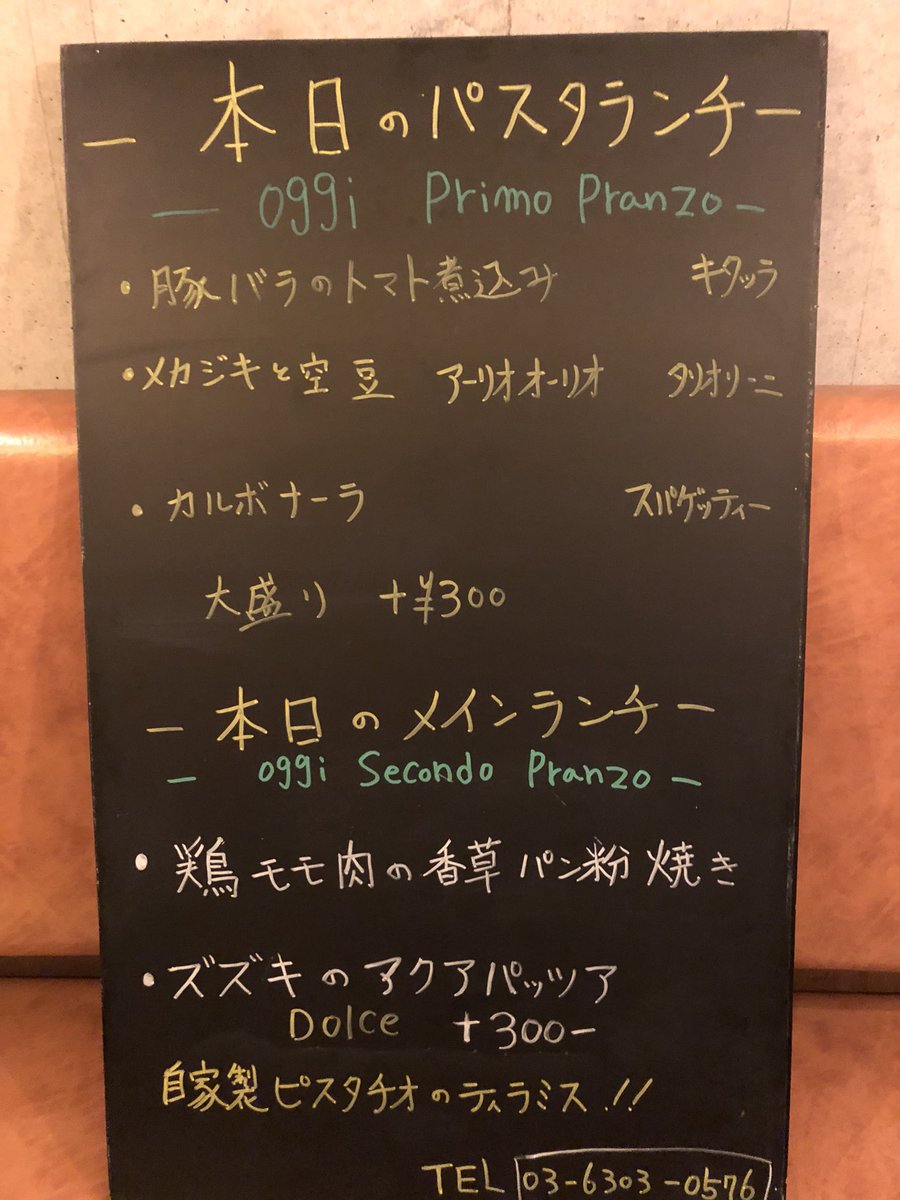 — 本日のパスタランチ —
— oggi Primo Pranzo —
・豚バラのトマト煮込み キタッラ
・メカジキと空豆 アーリオオーリオ タリオリーニ
・カルボナーラ スパゲッティー
大盛り +¥300
— 本日のメインランチ —
— oggi Secondo Pranzo —
・鶏モモ肉の香草パン粉焼き
・ズズキのアクアパッツア
Dolce +300-
自家製ピスタチオのティラミス!!
TEL 03-6303-0576